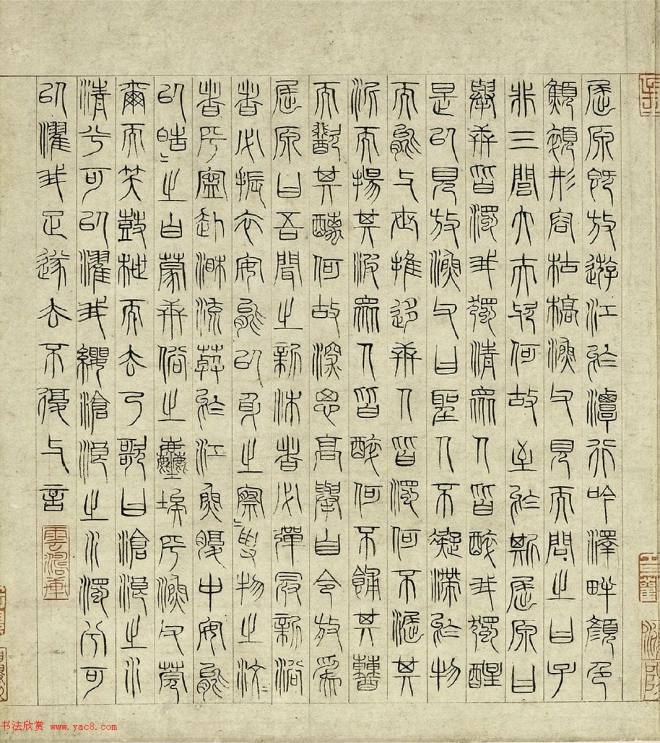 屈原既放遊江於潭行吟澤畔顏色
顦顇形容枯槁漁父見而問之曰子
非三閭大夫與何故至於斯屈原曰
舉世皆濁我獨清眾人皆醉我獨醒
是以見放漁父曰聖人不凝滯於物
而能與世推移世人皆濁何不淈其
泥而揚其波眾人皆醉何不餔其糟
而歠其醨何故深思高舉自令放為
屈原曰吾聞之新沐者必彈冠新浴
者必振衣安能以身之察〻受物之汶〻
者乎寧赴湘流葬於江魚腹中安能
以皓〻之白蒙世俗之塵埃乎漁父莞
爾而笑鼓枻而去乃歌曰滄浪之水
清兮可以濯我纓滄浪之水濁兮可
以濯我足遂去不復與言
书法欣赏 www.yac8.com